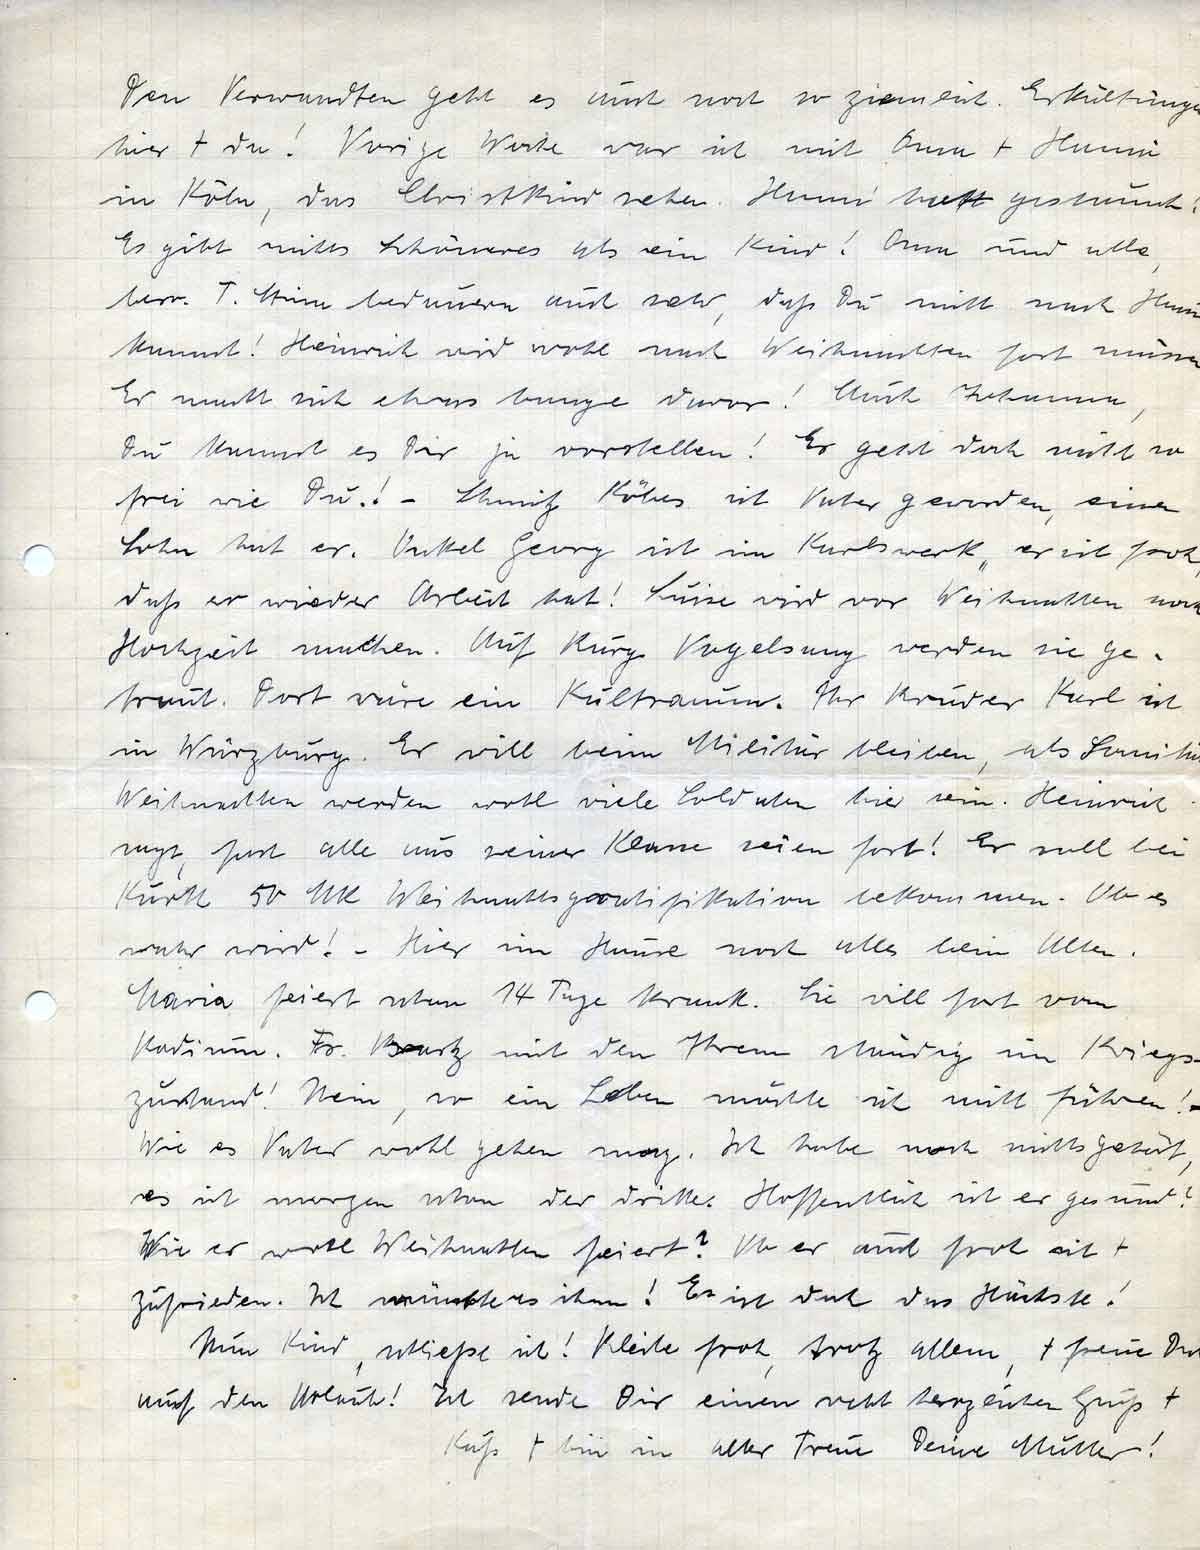 Den Verwandten geht es auch noch so ziemlich. Erkältungen
hier + da! Vorige Woche war ich mit Oma + Hanni
in Köln, das Christkind sehen. Hanni hat gestaunt!
Es gibt nichts Schöneres als ein Kind! Oma und alle,
bes. T. Stina bedauern auch sehr, daß Du nicht nach Haus
kannst! Heinrich wird wohl nach Weihnachten fort müssen
Er macht sich etwas bange davor! Auch Johanna,
Du kannst es Dir ja vorstellen! Er geht doch nicht so
frei wie Du.! - Schmitz Köbes ist Vater geworden, einen
Sohn hat er. Onkel Georg ist im Karlswerk, er ist froh,
daß er wieder Arbeit hat! Luise wird vor Weihnachten noch
Hochzeit machen. Auf Burg Vogelsang werden sie ge-
traut. Dort wäre ein Kultraum. Ihr Bruder Karl ist
in Würzburg. Er will beim Militär bleiben, als Sanitä
Weihnachten werden wohl viele Soldaten hier sein. Heinrich
sagt, fast alle aus seiner Klasse seien fort! Er soll bei
50 Mk Weihnachtsgratifikation bekommen. Ob es
wahr wird! - Hier im Hause noch alles beim Alten.
Maria feiert schon 14 Tage krank. Sie will fort vom
Radium. Fr. mit den Ihren ständig im Kriegs-
zustand! Nein, so ein Leben möchte ich nicht führen! -
Wie es Vater wohl gehen mag. Ich habe noch nichts gehört,
es ist morgen schon der dritte. Hoffentlich ist er gesund!
Wie er wohl Weihnachten feiert? Ob er auch froh ist +
zufrieden. Ich wünschte es ihm! Es ist doch das Höchste!
Nun Kind, schließe ich! Bleibe froh, trotz allem, + freue Dich
auf den Urlaub! Ich sende Dir einen recht herzlichen Gruß +
Kuß + bin in alter Treue Deine Mutter!